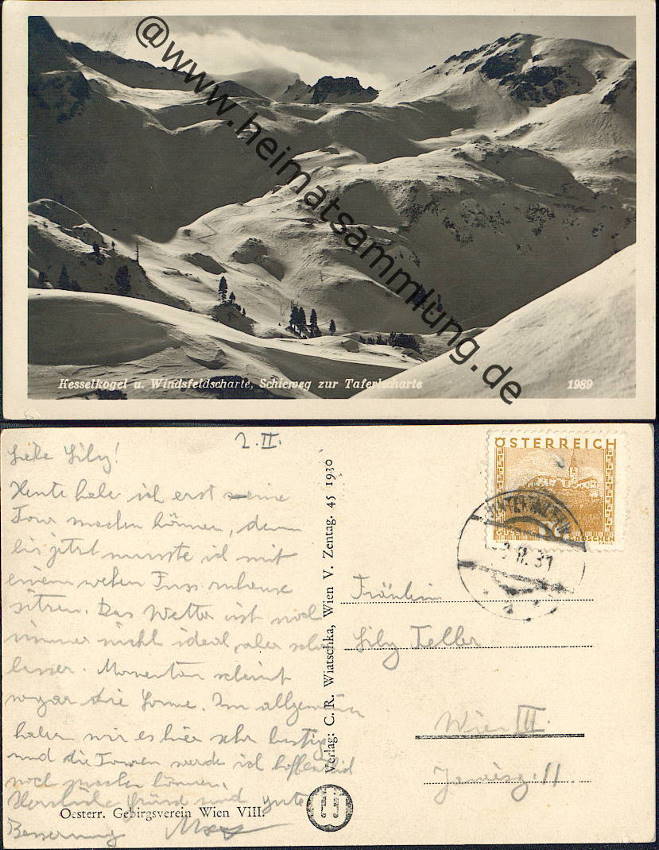 @www.heimatsammlung.de
Kesselkogel u. Windsfeldscharte, Schieweg zur Taferlscharte 1989
2. II.
Liebe Lily!
Heute habe ich erst eine
Tour machen können, denn
bis jetzt musste ich mit
einem wehen Fuss zuhause
sitzen. Das Wetter ist noch
immer nicht ideal, aber schon
besser. Momentan scheint
sogar die Sonne. Im allgemeinen
haben wir es hier sehr lustig
und die Touren werde ich hoffentlich
noch machen können.
Herzliche Grüsse und gute
Besserung
Oesterr. Gebirgsverein Wien VIII.
Verlag: C. R. Wiatschka, Wien V. Zentag. 45 1930
ÖSTERREICH
GROSCHEN
2.II.31
Fräulein
Lily Teller
Wien III.
11